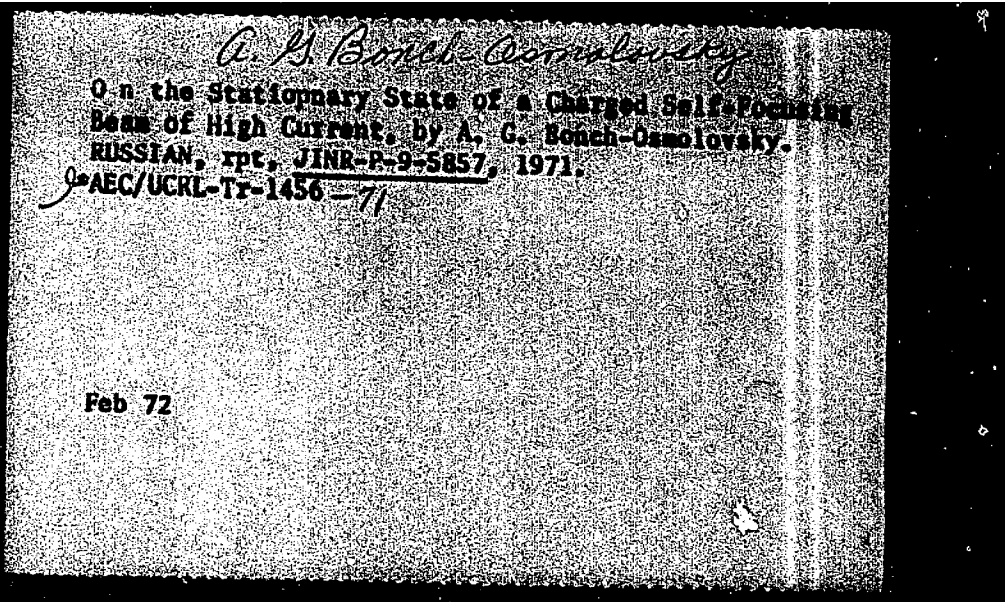 A. G. Bonch-Osmolovsky
O n the Statiopnary State of a Charged Self-Focusing
Beam of High Current, by A. G. Bonch-Osmolovsky.
RUSSIAN, rpt, JINR-P-9-5857, 1971.
*AEC/UCRL-Tr-1456-71
Feb 72